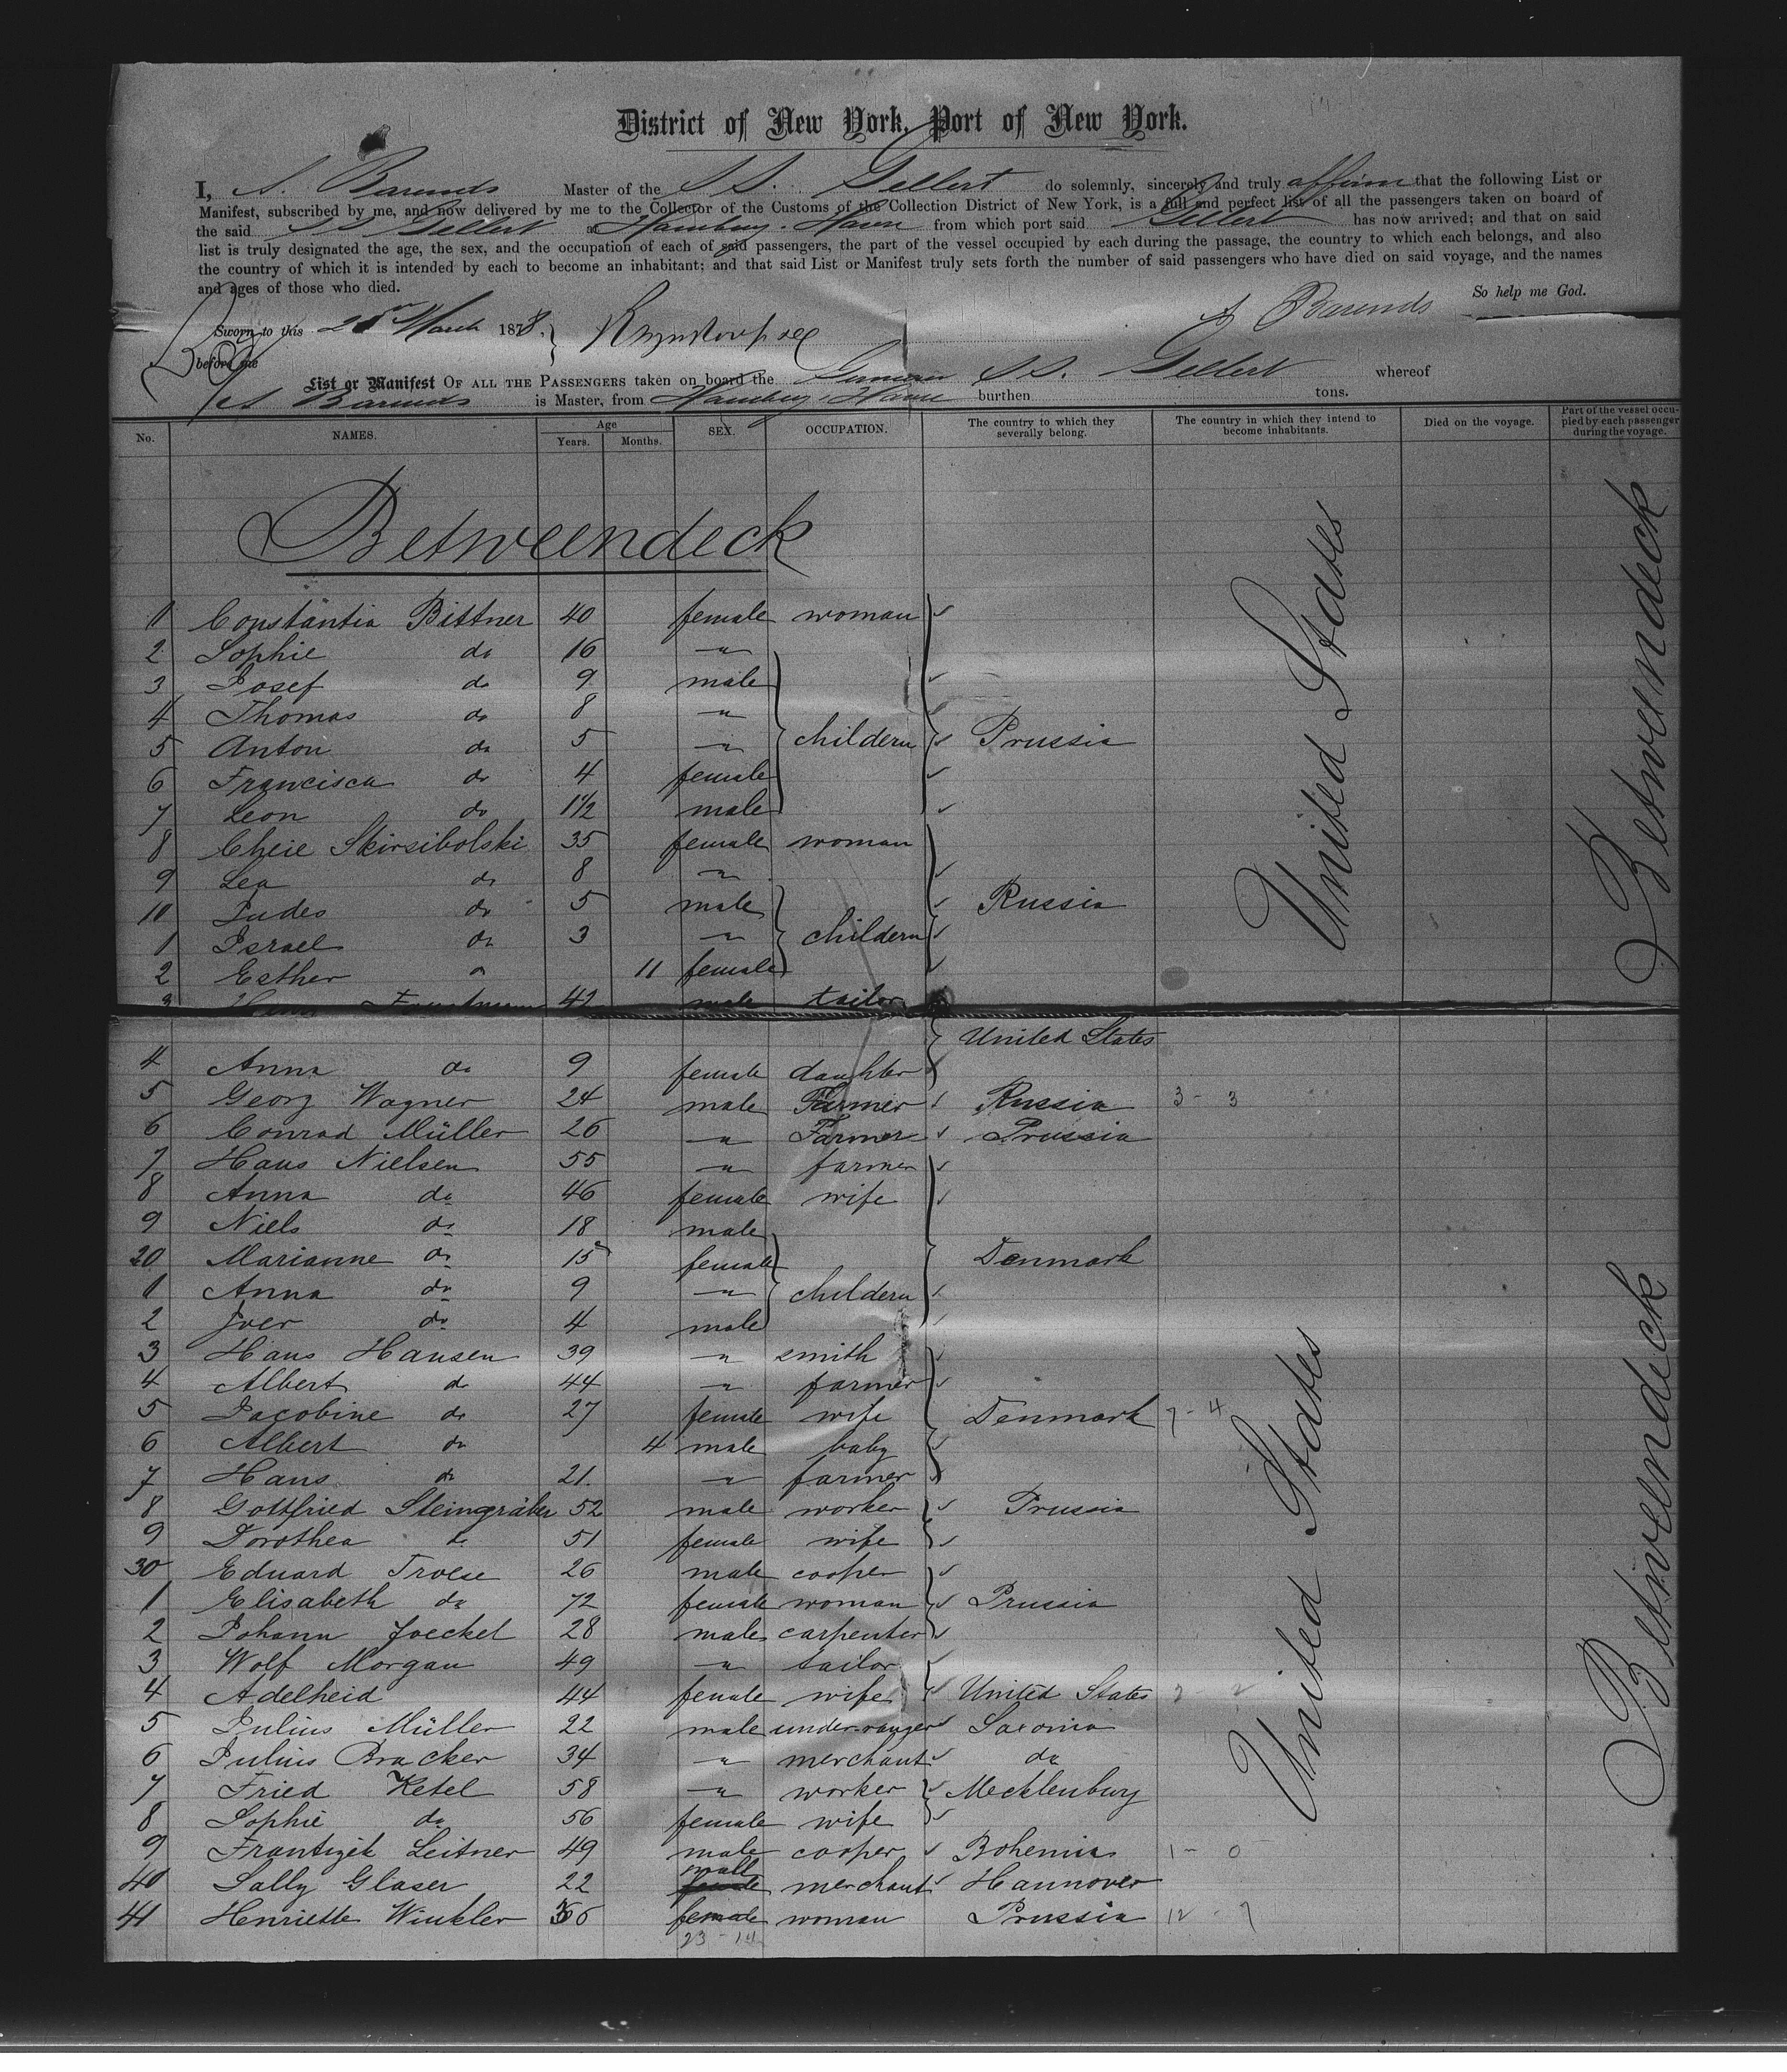 District of New York, Port of New York.
I, A. Barends Master of the SS. Gellert do solemnly, sincerely and truly affirm that the following List or
Manifest, subscribed by me, and now delivered by me to the Collector of the Customs of the Collection District of New York, is a full and perfect list of all the passengers taken on board of
the said SS Gellert at Hamburg. Havre from which port said Gellert has now arrived; and that on said
list is truly designated the age, the sex, and the occupation of each of said passengers, the part of the vessel occupied by each during the passage, the country to which each belongs, and also
the country of which it is intended by each to become an inhabitant; and that said List or Manifest truly sets forth the number of said passengers who have died on said voyage, and the names
and ages of those who died.
So help me God.
Sworn to this 25 March 1878. A Barends
before me
List or Manifest OF ALL THE PASSENGERS taken on board the German SS. Gellert whereof
A Barends is Master, from Hamburg, Havre burthen tons.
No. NAMES. Age Years. Months. SEX. OCCUPATION. The country to which they severally belong. The country in which they intend to become inhabitants. Died on the voyage. Part of the vessel occupied by each passenger during the voyage.
Betweendeck
United States
Betweendeck
1 Constantia Bittner 40 female woman
2 Sophie do 16 "
3 Josef do 9 male
4 Thomas do 8 "
5 Anton do 5 " childern Prussia
6 Francisca do 4 female
7 Leon do 1 1/2 male
8 Cheie Skirsibolski 35 female woman
9 Lea do 8 "
10 Judes do 5 male Russia
1 Israel do 3 " childern
2 Esther " 11 female
3 42 male tailor
United States
4 Anna do 9 female daughter
5 Georg Wagner 24 male Farmer Russia 3 - 3
6 Conrad Müller 26 " Farmer Prussia
7 Hans Nielsen 55 " farmer
8 Anna do 46 female wife
9 Niels do 18 male
20 Marianne do 15 female Denmark
1 Anna do 9 " childern
2 Iver do 4 male
3 Hans Hansen 39 " smith
4 Albert do 44 " farmer
5 Jacobine do 27 female wife Denmark 7 - 4
6 Albert do 4 male baby
7 Hans do 21. " farmer
8 Gottfried Steingräber 52 male worker Prussia
9 Dorothea do 51 female wife
30 Eduard Troese 26 male cooper
1 Elisabeth do 72 female woman Prussia
2 Johann Joeckel 28 male carpenter
3 Wolf Morgan 49 " tailor
4 Adelheid 44 female wife United States 2 - 2
5 Julius Müller 22 male under-ranger Saxonia
6 Julius Bracker 34 " merchant do
7 Fried Ketel 58 " worker Mecklenburg
8 Sophie do 56 female wife
9 Frantizek Leitner 49 male cooper Bohemia 1 - 0
40 Sally Glaser 22 male merchant Hannover
41 Henriette Winkler 36 female woman Prussia 12 - 7
23 - 14
United States
Betweendeck